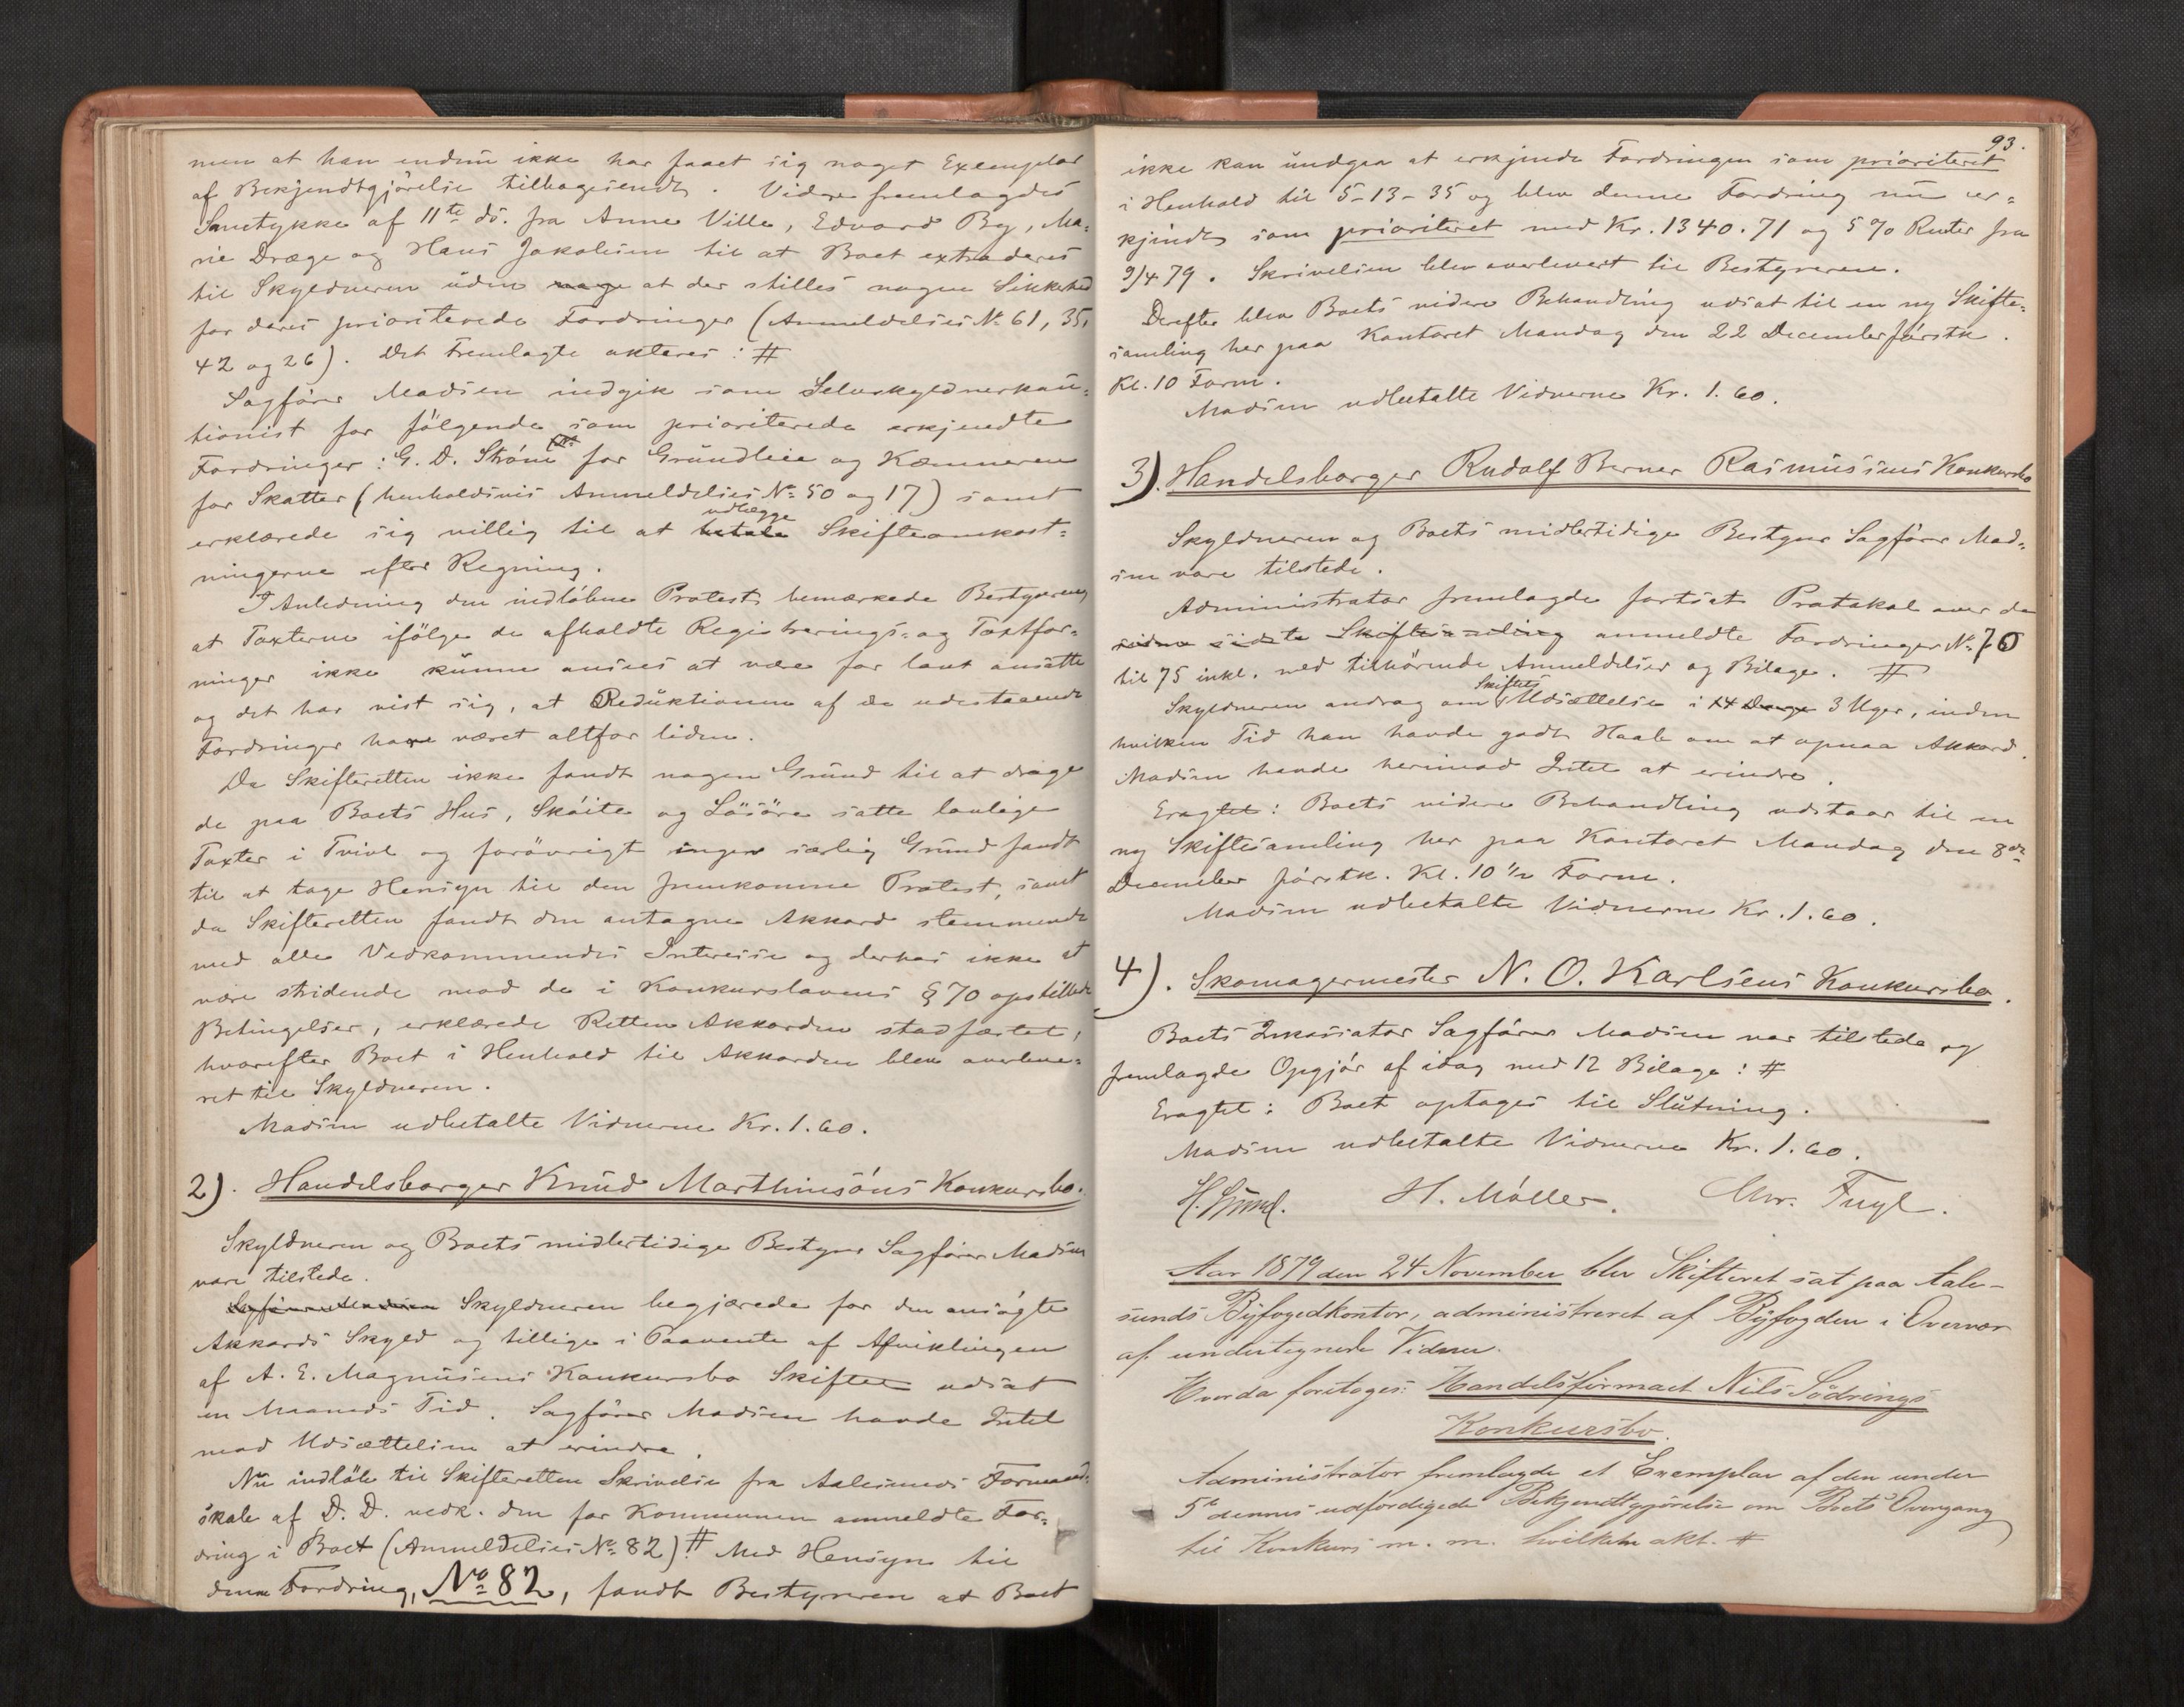 men at han endnu ikke har faaet sig noget Exemplar
af Bekjendtgjörelse tilbagesendt. Videre fremlagdes
Samtykke af 11te ds. fra Anne Ville, Edvard By, Ma-
rie Dræge og Hans Jakobsen til at Boet extraderes
til Skyldneren uden noge at der stilles nogen Sikkerhed
for deres prioriterede Fordringer (Anmeldelser No 61, 35,
42 og 26). Det Fremlagte akteres: #
Sagförer Madsen indgik som Selvskyldnerkau-
tionist for fölgende som prioriterede erkjendte
Fordringer: G. D. Ström for Grundleie og Kæmneren
for Skatter (henholdsvis Anmeldelser No 50 og 17) samt
erklærede sig villig til at betale udlægge Skifteomkost-
ningerne efter Regning.
I Anledning den indlöbne Protest bemærkede Bestyreren,
at Taxterne ifölge de afholdte Registrerings- og Taxtfor-
ninger ikke kunne ansees at være for lavt ansatte
og det har vist sig, at Reduktionen af de udestaaende
Fordringer have været altfor liden.
Da Skifteretten ikke fandt nogen Grund til at drage
de paa Boets Hus, Sköite og Lösöre satte lovlige
Taxter i Tvivl og forövrigt ingen særlig Grund fandt
til at tage Hensyn til den fremkomne Protest, samt
da Skifteretten fandt den antagne Akkord stemmende
med alle Vedkommendes Interesse og derhos ikke at
være stridende mod de i Konkurslovens § 70 opstillede
Betingelser, erklærede Retten Akkorden stadfæstet,
hvorefter Boet i Henhold til Akkorden blev overleve-
ret til Skyldneren.
Madsen udbetalte Vidnerne Kr. 1.60.
2). Handelsborger Knud Marthinsöns Konkursbo.
Skyldneren og Boets midlertidige Bestyrer Sagförer Madsen
vare tilstede.
Skyldneren begjærede for den ansögte
Akkords Skyld og tillige i Paavente af Afviklingen
af A. E. Magnusens Konkursbo Skiftet udsat
en Maaneds Tid. Sagförer Madsen havde Intet
mod Udsættelsen at erindre.
Nu indlöb til Skifteretten Skrivelse fra Aalesunds Formand-
skab af D. D. vedk. den for Kommunen anmeldte For-
dring i Boet (Anmeldelses No 82) # Med Hensyn til
denne Fordring, No 82, fandt Bestyreren at Boet
93.
ikke kan undgaa at erkjende Fordringen som prioriteret
i Henhold til 5-13-35 og blev denne Fordring nu er-
kjendt som prioriteret med Kr. 1340.71 og 5 % Renter fra
9/4 79. Skrivelsen blev overleveret til Bestyreren.
Derefter blev Boets videre Behandling udsat til en ny Skifte-
samling her paa Kontoret Mandag den 22 December förstk.
Kl. 10 Form.
Madsen udbetalte Vidnerne Kr. 1.60.
3). Handelsborger Rudolf Berner Rasmussens Konkursbo
Skyldneren og Boets midlertidige Bestyrer Sagförer Mad-
sen vare tilstede.
Administrator fremlagde fortsat Protokol over de
siden sidste Skiftesamling anmeldte Fordringer No 70
til 75 inkl. med tilhörende Anmeldelser og Bilage. #
Skyldneren androg om Skiftets Udsættelse i 14 Dage 3 Uger, inden
hvilken Tid han havde godt Haab om at opnaa Akkord.
Madsen havde herimod Intet at erindre.
Eragtet: Boets videre Behandling udstaar til en
ny Skiftesamling her paa Kontoret Mandag den 8de
December förstk. Kl. 10 1/2 Form.
Madsen udbetalte Vidnerne Kr. 1.60.
4). Skomagermester N. O. Karlsens Konkursbo.
Boets Inkassator Sagförer Madsen var tilstede og
fremlagde Opgjör af idag med 12 Bilage: #
Eragtet: Boet optages til Slutning.
Madsen udbetalte Vidnerne Kr. 1.60.
H. Möller. Chr. Fugl.
Aar 1879 den 24 November blev Skifteret sat paa Aale-
sunds Byfogedkontor, administreret af Byfogden i Overvær
af undertegnede Vidner.
Hvorda foretoges: Handelsfirmaet Nils Södrings
Konkursbo.
Administrator fremlagde et Exemplar af den under
5te dennes udfærdigede Bekjendtgjörelse om Boets Overgang
til Konkurs m. m. hvilken akt. #